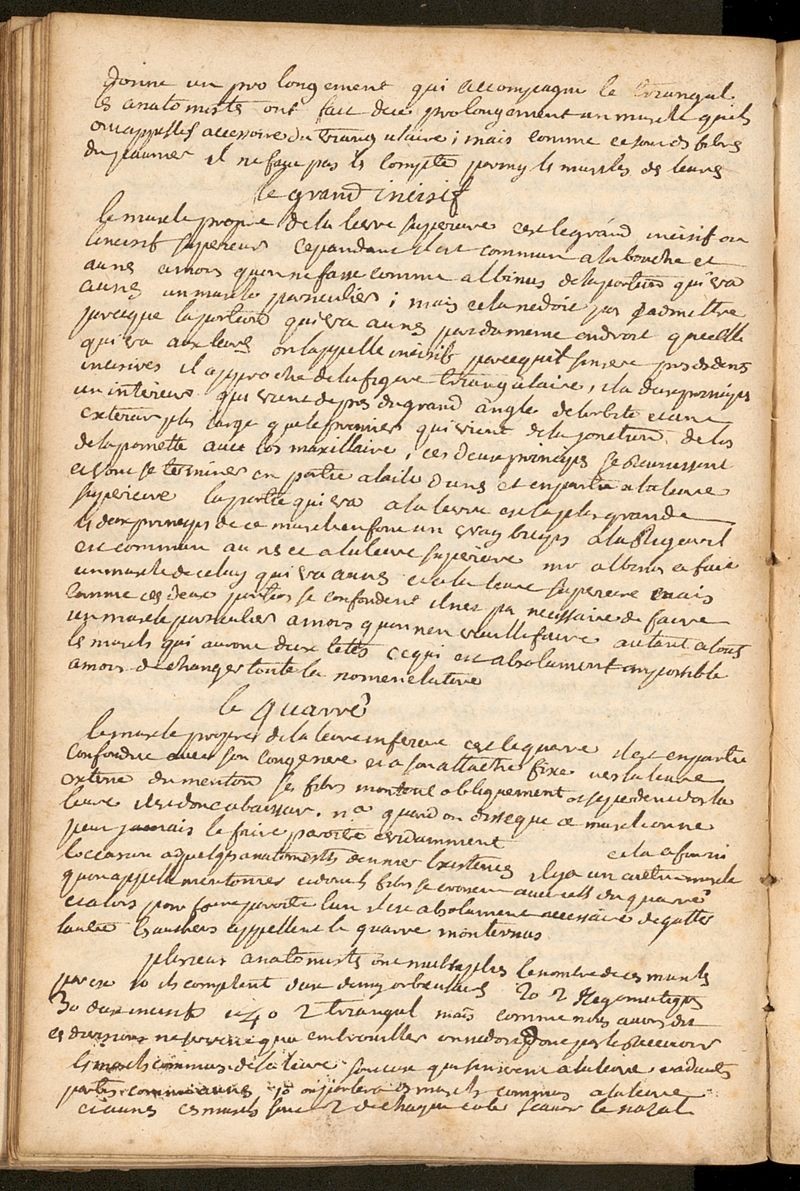 donne un prolongement qui accompagne le triangul
les anatomistes ont fait de ce prolongement un muscle quils
ont appellés accessoire du triangulaire ; mais comme ce sont des fibres
du peaucier il ne faut pas les compter parmy les muscles des levres
le grand incisif
le muscle propre de la levre superieure cest le grand incisif ou
lincisif superieur cependant il est commun a la bouche et
au nes amoins quon ne fasse comme albinus de la portion qui va
au nes un muscle particulier ; mais cela ne doit pas sadmettre
parceque la portion qui va au nes part du meme endroit que celle
qui va aux levres on lappelle incisif parcequil sinsere pres des dens
incisives il approche de la figure triangulaire , il a deux principes
un interieur qui vient de pres du grand angle de lorbite et un
exterieur plus large que le premier qui vient de la jonction de los
de la pomette avec los maxillaire , ces deux principes se reunissent
et vont se terminer en partie a laile du nes et en partie a la levre
superieure la partie qui va a la levre est la plus grande
les deux principes de ce muscle en font un vray biceps
est commun au nes et a la levre superieure mr albinus en fait
un muscle de celuy qui va au nes et a la levre superieure mais
comme ces deux portions se confondent il nest pas necessaire de faire
un muscle particulier amoins quon nen veuille faire autant a tous
les muscles qui auront deux tetes ce qui est absolument impossible
amoins de changer toute la nomenclature
le quarré
le muscle propre de la levre inferieure cest le quarré il est en partie
confondu avec son congenere et a son attache fixe vers la levre
externe du menton ses fibres montent obliquement et se perdent dans la
levre il doit donc abaisser . quand on disseque ce muscle on ne
peut jamais le faire paroitre evidamment
et cela a fourni
loccasion a quelques anatomistes den nier lexistence il y a un autre muscle
quon appelle mentonier et dont les fibres se croisent avec celles du quarré
et alors pour faire paroitre lun il est absolument necessaire de gatter
lautre les autheurs appellent le quarré
plusieurs anatomistes ont multiplié le nombre de ces muscles
par ex 1o ils comptent deux demy orbiculaires 2o 2 zigomatiques
3o deux incisifs 4o 2 triangul mais comme nous avons dit
ces divisions ne servent qua embrouiller on ne doit donc pas les recevoir
les muscles communs de la levre sont ceux qui servent a la levre et a dautres
parties comme au nes on portera les muscles communs a la levre
et au nes ces muscles sont 2 de chaque coté scavoir le nazal